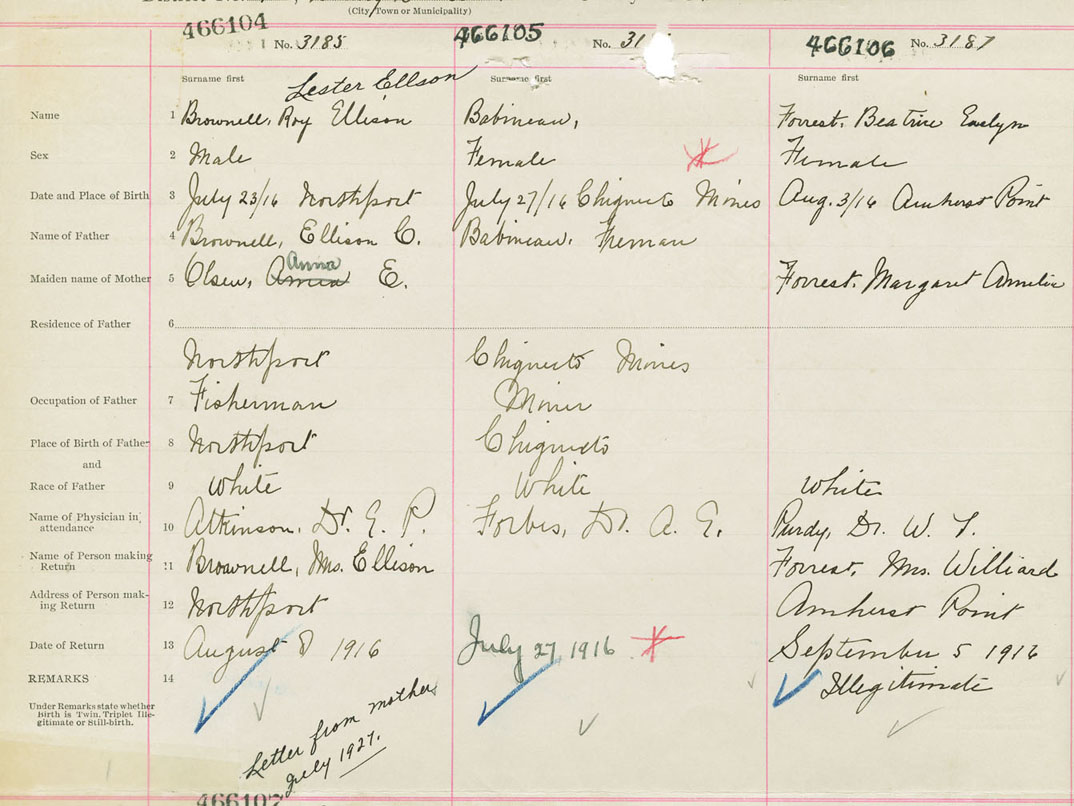 (City, Town or Municipality)
466104 No. 3185
466105 No. 31
466106 No. 3187
Surname first Surname first Surname first
Lester Ellson
Name 1 Brownell, Roy Ellison Babineau, Forrest. Beatrice Evelyn
Sex 2 Male Female Female
Date and Place of Birth 3 July 23/16 Northport July 27/16 Chignecto Mines Aug. 3/16 Amherst Point
Name of Father 4 Brownell, Ellison C. Babineau. Freman
Anna
Maiden name of Mother 5 Olsen, E. Forrest. Margaret Amelia
Residence of Father 6
Northport Chignecto Mines
Occupation of Father 7 Fisherman Miner
Place of Birth of Father 8 Northport Chignecto
and
Race of Father 9 White White White
Name of Physician in
attendance 10 Atkinson, Dr. E. P. Forbes, Dr. A. E. Purdy, Dr. W. T.
Name of Person making
Return 11 Brownell, Mrs. Ellison Forrest. Mrs. Williard
Address of Person mak-
ing Return 12 Northport Amherst Point
Date of Return 13 August 8 1916 July 27, 1916 September 5 1916
REMARKS 14 Illegitimate
Under Remarks state whether
Birth is Twin, Triplet, Ille-
gitimate or Still-birth.
Letter from mother
July 1927.
466107